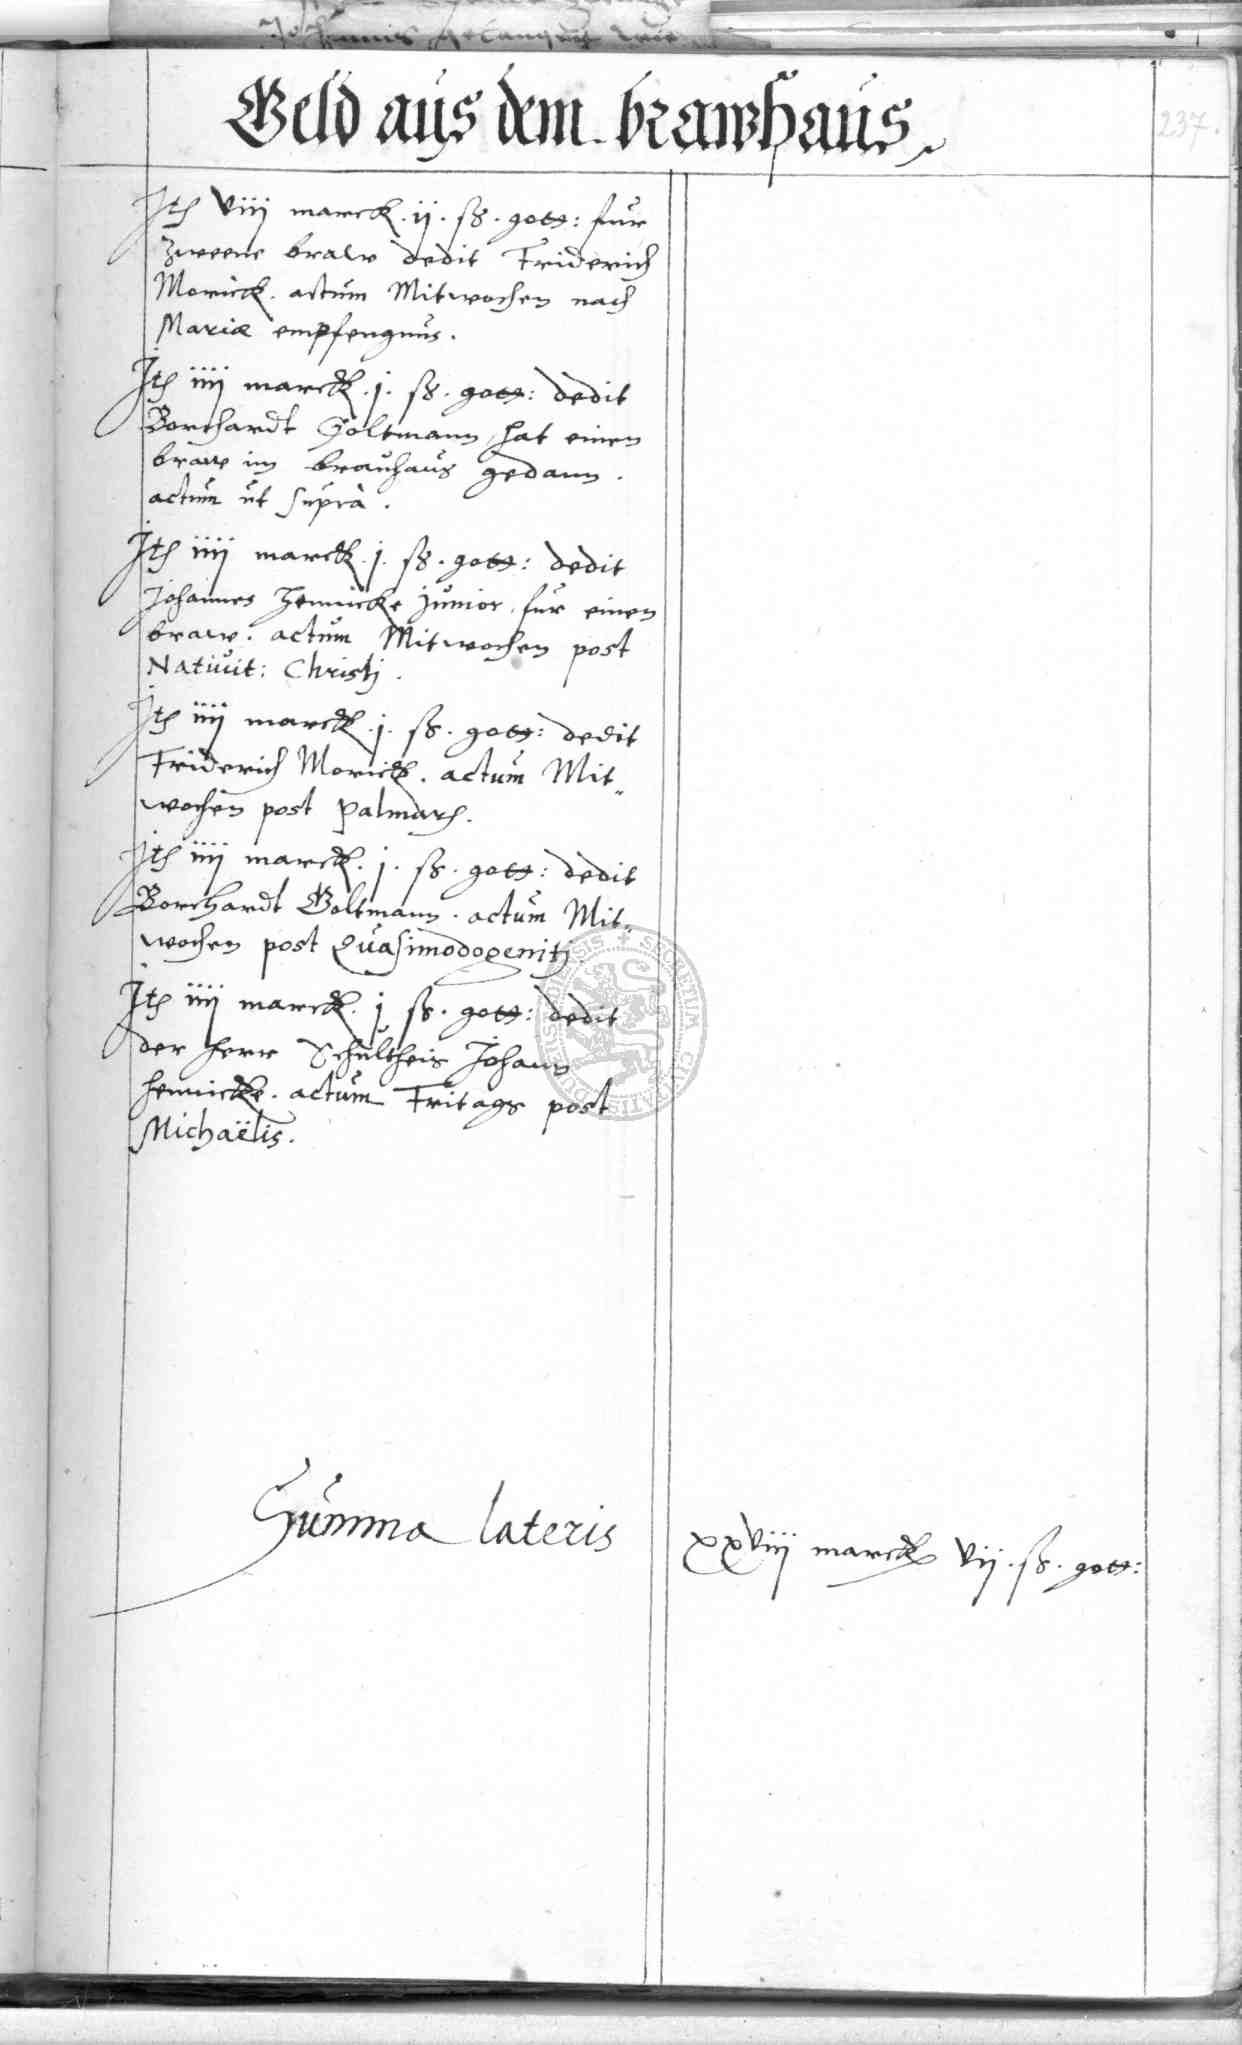 Geld aus dem brawhaus
237.
Ite viij marck. ij. ß. gott: fur
zweene braw dedit Friderich
Morick. actum Mitwochen nach
Mariæ empfengnus.
Ite iiij marck. j. ß. gott: dedit
Borchardt Goltmann, hat einen
braw im brauhaus gedann.
actum ut suprà.
Ite iiij marck. j. ß. gott: dedit
Johannes Hennicke junior. fur einen
braw. actum Mitwochen post
Nativit: Christj.
Ite iiij marck. j. ß. gott: dedit
Friderich Morick. actum Mit„
wochen post palmar.
Ite iiij marck. j. ß. gott: dedit
Borchardt Goltmann. actum Mit„
wochen post Quasimodogenitj.
Ite iiij marck. j ß. gott: dedit
der herr Schultheis Johann
hennicke. actum Fritags post
Michaëlis.
Summa lateris xxviij marck vij. ß. gott: